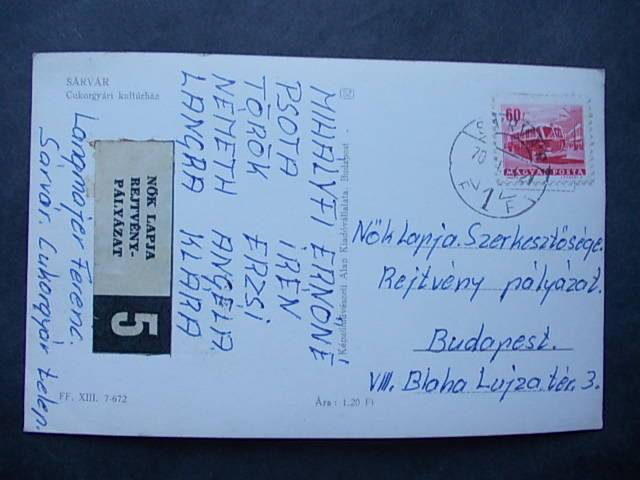 SÁRVÁR
Cukorgyári kultúrház
MIHÁLYFI ERNŐNÉ
PSOTA IRÉN
TÖRÖK ERZSI
NÉMETH ANGÉLA
LANCRA KLÁRA
Langmajer Ferenc.
Sárvár. Cukorgyár telep.
NŐK LAPJA
REJTVÉNY-
PÁLYÁZAT
5
Képzőművészeti Alap Kiadóvállalata, Budapest
60f
MAGYAR POSTA
Nők Lapja. Szerkesztősége.
Rejtvény pályázat.
Budapest.
VIII. Blaha Lujza. tér. 3.
FF. XIII. 7-672
Ára: 1,20 Ft